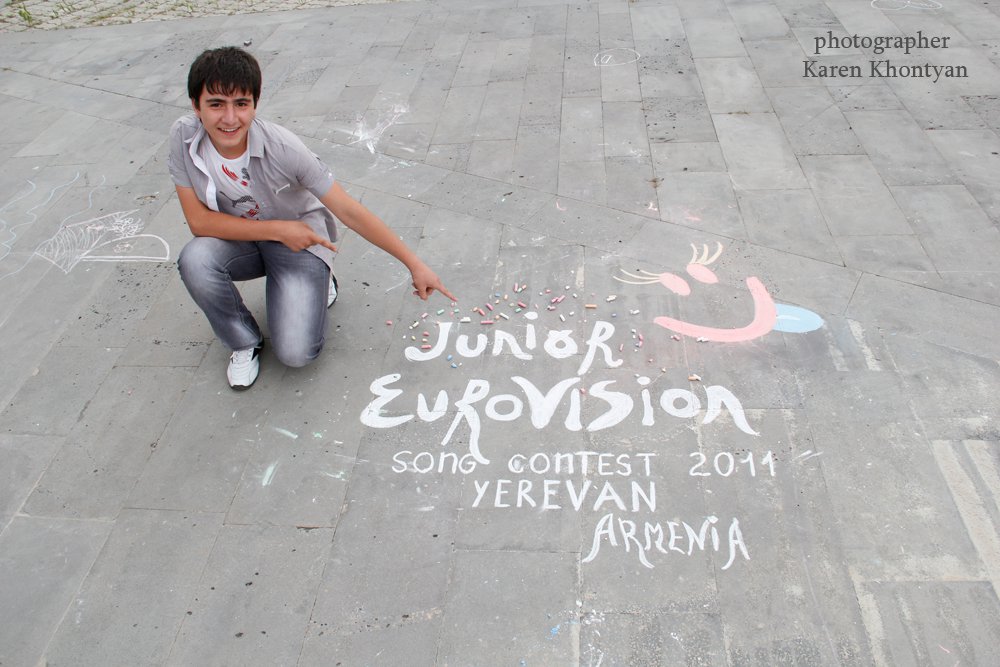 photographer
Karen Khontyan
Junior
EUROVISION
SONG CONTEST 2011
YEREVAN
ARMENIA